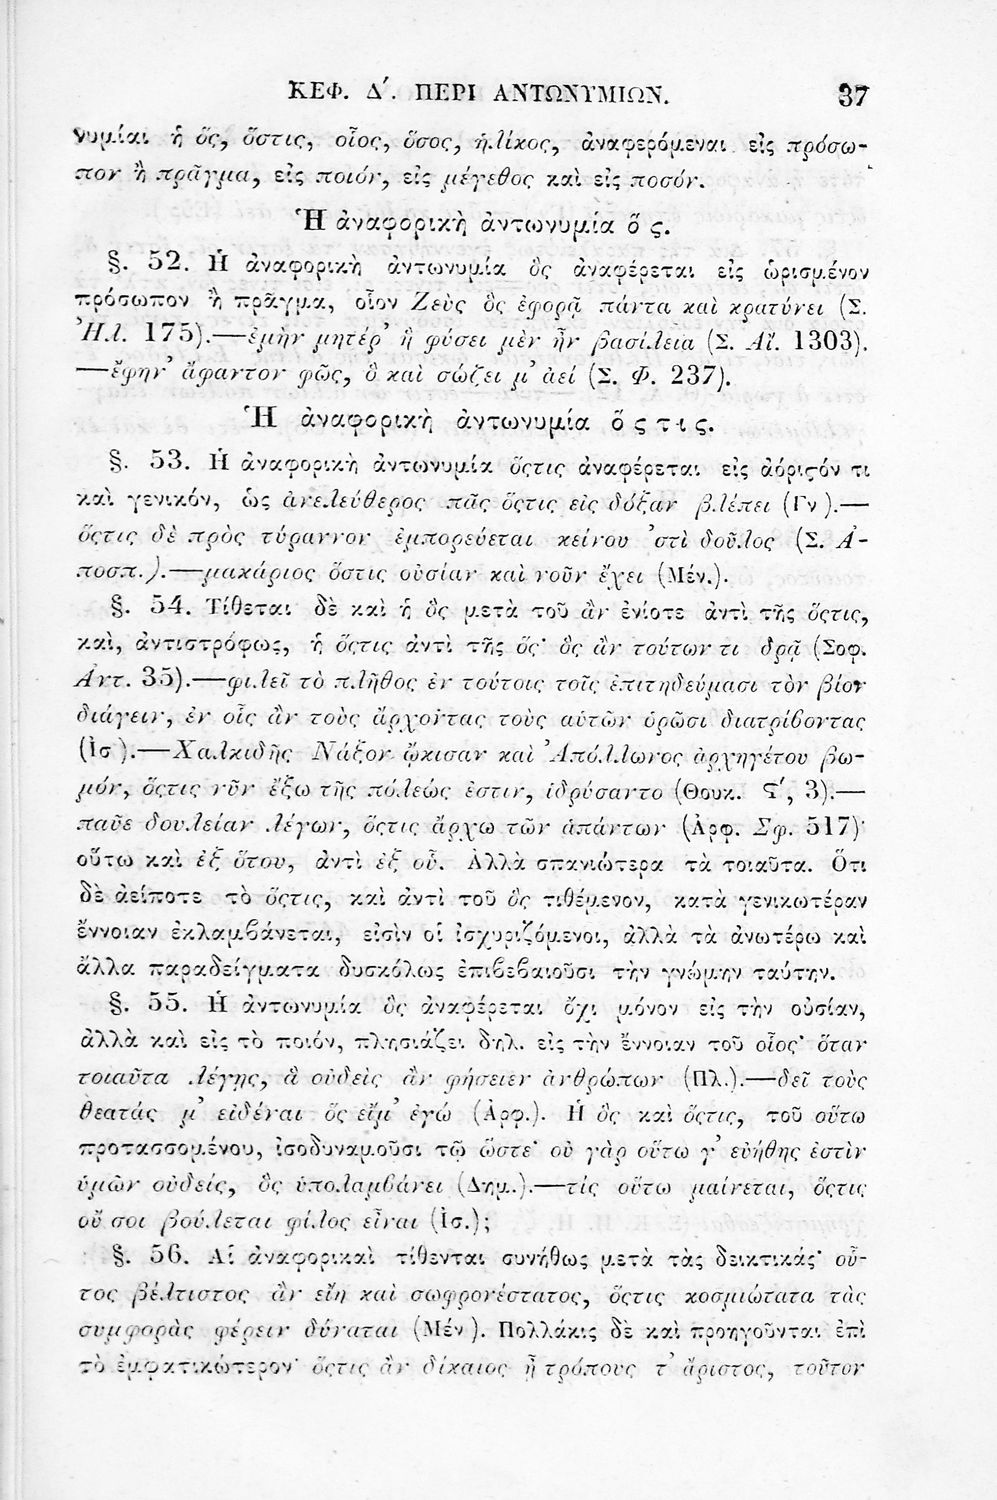 ΚΕΦ. Δ΄. ΠΕΡΙ ΑΝΤΩΝΥΜΙΩΝ. 37
νυμίαι ἡ ὅς, ὅστις, οἷος, ὅσος, ἡλίκος, ἀναφερόμεναι εἰς πρόσω-
πον ἢ πρᾶγμα, εἰς ποιόν, εἰς μέγεθος καὶ εἰς ποσόν.
Ἡ ἀναφορικὴ ἀντωνυμία ὅς.
§. 52. Ἡ ἀναφορικὴ ἀντωνυμία ὃς ἀναφέρεται εἰς ὡρισμένον
πρόσωπον ἢ πρᾶγμα, οἷον Ζεὺς ὃς ἐφορᾷ πάντα καὶ κρατύνει (Σ.
Ἠλ. 175).—ἐμὴν μητέρ' ἣ φύσει μὲν ἦν βασίλεια (Σ. Αἴ. 1303).
—ἔφην' ἄφαντον φῶς, ὃ καὶ σώζει μ' ἀεί (Σ. Φ. 237).
Ἡ ἀναφορικὴ ἀντωνυμία ὅςτις.
§. 53. Ἡ ἀναφορικὴ ἀντωνυμία ὅςτις ἀναφέρεται εἰς ἀόριϛόν τι
καὶ γενικόν, ὡς ἀνελεύθερος πᾶς ὅςτις εἰς δόξαν βλέπει (Γν).—
ὅςτις δὲ πρὸς τύραννον ἐμπορεύεται κείνου 'στὶ δοῦλος (Σ. Ἀ-
ποσπ.).—μακάριος ὅστις οὐσίαν καὶ νοῦν ἔχει (Μέν.).
§. 54. Τίθεται δὲ καὶ ἡ ὃς μετὰ τοῦ ἂν ἐνίοτε ἀντὶ τῆς ὅςτις,
καὶ, ἀντιστρόφως, ἡ ὅςτις ἀντὶ τῆς ὅς· ὃς ἂν τούτων τι δρᾷ (Σοφ.
Ἀντ. 35).—φιλεῖ τὸ πλῆθος ἐν τούτοις τοῖς ἐπιτηδεύμασι τὸν βίον
διάγειν, ἐν οἷς ἂν τοὺς ἄρχοντας τοὺς αὑτῶν ὁρῶσι διατρίβοντας
(Ἰσ).—Χαλκιδῆς Νάξον ᾤκισαν καὶ Ἀπόλλωνος ἀρχηγέτου βω-
μόν, ὅςτις νῦν ἔξω τῆς πόλεώς ἐστιν, ἱδρύσαντο (Θουκ. Ϛ΄, 3).—
παῦε δουλείαν λέγων, ὅςτις ἄρχω τῶν ἁπάντων (Ἀρφ. Σφ. 517)·
οὕτω καὶ ἐξ ὅτου, ἀντὶ ἐξ οὗ. Ἀλλὰ σπανιώτερα τὰ τοιαῦτα. Ὅτι
δὲ ἀείποτε τὸ ὅςτις, καὶ ἀντὶ τοῦ ὃς τιθέμενον, κατὰ γενικωτέραν
ἔννοιαν ἐκλαμβάνεται, εἰσὶν οἱ ἰσχυριζόμενοι, ἀλλὰ τὰ ἀνωτέρω καὶ
ἄλλα παραδείγματα δυσκόλως ἐπιβεβαιοῦσι τὴν γνώμην ταύτην.
§. 55. Ἡ ἀντωνυμία ὃς ἀναφέρεται ὄχι μόνον εἰς τὴν οὐσίαν,
ἀλλὰ καὶ εἰς τὸ ποιόν, πλησιάζει δηλ. εἰς τὴν ἔννοιαν τοῦ οἷος· ὅταν
τοιαῦτα λέγῃς, ἃ οὐδεὶς ἂν φήσειεν ἀνθρώπων (Πλ.).—δεῖ τοὺς
θεατάς μ' εἰδέναι ὅς εἰμ' ἐγώ (Ἀρφ.). Ἡ ὃς καὶ ὅςτις, τοῦ οὕτω
προτασσομένου, ἰσοδυναμοῦσι τῷ ὥστε· οὐ γὰρ οὕτω γ' εὐήθης ἐστὶν
ὑμῶν οὐδείς, ὃς ὑπολαμβάνει (Δημ.).—τίς οὕτω μαίνεται, ὅςτις
οὔ σοι βούλεται φίλος εἶναι (Ἰσ.);
§. 56. Αἱ ἀναφορικαὶ τίθενται συνήθως μετὰ τὰς δεικτικάς· οὗ-
τος βέλτιστος ἂν εἴη καὶ σωφρονέστατος, ὅςτις κοσμιώτατα τὰς
συμφορὰς φέρειν δύναται (Μέν). Πολλάκις δὲ καὶ προηγοῦνται ἐπὶ
τὸ ἐμφατικώτερον· ὅςτις ἂν δίκαιος ᾖ τρόπους τ' ἄριστος, τοῦτον